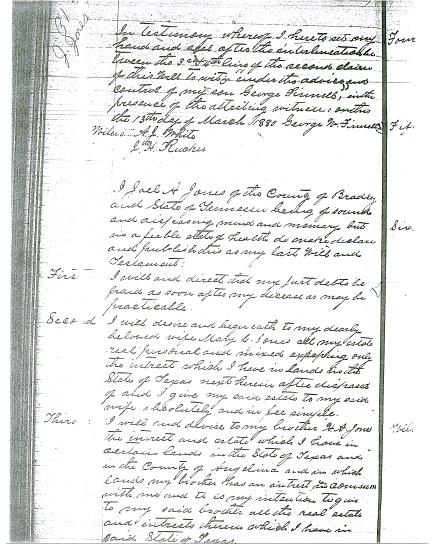 J. A. Jones
In testimony whereof I hereto set my
hand and seal after the interlineation be
tween the 3rd & 4th line of the second clause
of this Will to wit: "under the advice and
control of my son George Finnell", in the
presence of the attesting witness: on this
the 13th day of March 1880 George W. Finnell
Witness A. J. White
C. H. Rucker
I Joel A Jones of the County of Bradley
and State of Tennessee being of sound
and disposing mind and memory but
in a feeble state of health do make declare
and publish this as my last Will and
Testament:
First I will and direct that my just debts be
paid as soon after my decease as may be
practicable.
Second I will desire and bequeath to my dearly
beloved wife Mary C. Jones all my estate
real personal and mixed excepting only
the intrest which I have in lands in the
State of Texas next herein after disposed
of and I give my said estate to my said
wife absolutely and in fee simple.
Third: I will and devise to my brother H. A. Jones
the intrest and estate which I have in
certain lands in the State of Texas and
in the County of Angelina and in which
lands my brother has an intrest in common
with me and it is my intention to give
to my said brother all the real estate
and intrests therein which I have in
said State of Texas.
Four
Fif
Six